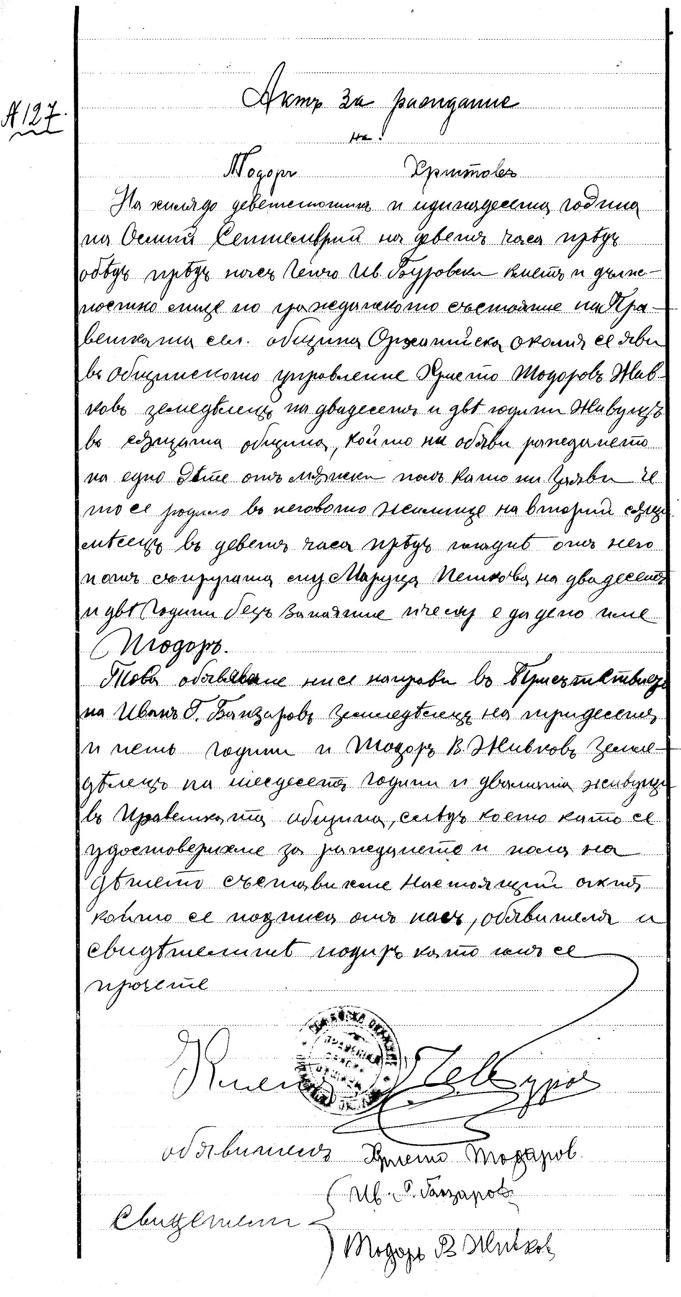 № 127.
Актъ за раждание
на
Тодоръ Христовъ
На хилядо деветстотинъ и единадесета година
на Осмий Септемврий на деветь часа прѣдъ
обѣдъ прѣдъ насъ Генчо Ив. Бѫровски кметъ и длъж-
ностно лице по гражданското състояние на Пра-
вешката сел. община Орханийска околия се яви
въ общинското управление Христо Тодоровъ Жив-
ковъ земедѣлецъ на двадесеть и двѣ години живущъ
въ сѫщата община, който ни обяви раждането
на едно дѣте отъ мѫжки полъ като ни заяви че
то се родило въ неговото жилище на вторий сѫщи
мѣсецъ въ деветь часа прѣдъ пладнѣ отъ него
и отъ съпругата му Маруца Петкова на двадесеть
и двѣ години безъ занятие и че му е дадено име
Тодоръ.
Това обявяване ни се направи въ присѫтствието
на Иванъ Г. Банзаровъ земледѣлецъ на тридесеть
и петь години и Тодоръ В. Живковъ земле-
дѣлецъ на шесдесеть години и двамата живущи
въ Правешката община, слѣдъ което като се
удостоверихме за раждането и пола на
дѣтето съставихме настоящий актъ
който се подписа отъ насъ, обявителя и
свидѣтелитѣ подиръ като имъ се
прочете
Кметъ
обявителъ Христо Тодоров
Ив. Г. Банзаровъ
Свидетели
Тодоръ В Живков